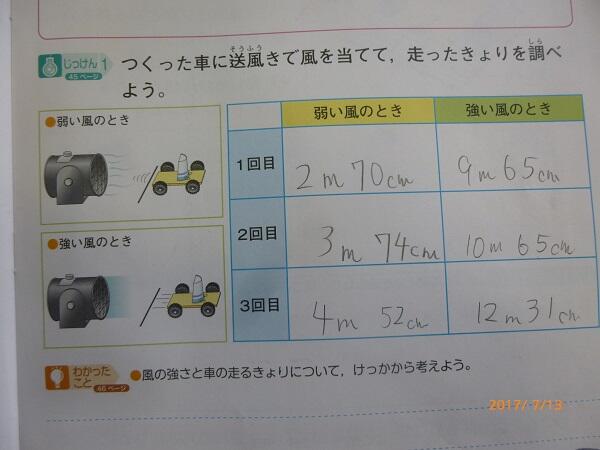 じっけん1
45ページ
つくった車に送風きで風を当てて，走ったきょりを調べ
よう。
そうふう
しら
●弱い風のとき
●強い風のとき
弱い風のとき 強い風のとき
1回目 2m 70cm 9m 65cm
2回目 3m 74cm 10m 65cm
3回目 4m 52cm 12m 31cm
わかった
こと
46ページ
●風の強さと車の走るきょりについて，けっかから考えよう。
2017/ 7/13